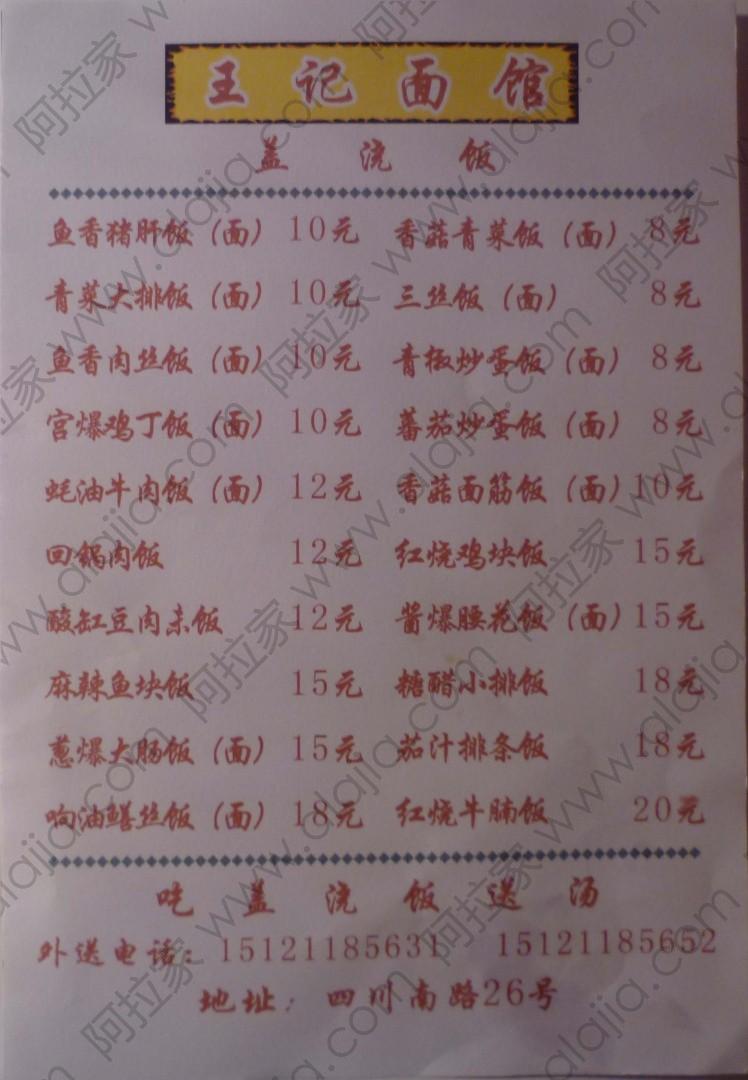 王记面馆
盖浇饭
鱼香猪肝饭（面）10元 香菇青菜饭（面）8元
青菜大排饭（面）10元 三丝饭（面）8元
鱼香肉丝饭（面）10元 青椒炒蛋饭（面）8元
宫爆鸡丁饭（面）10元 蕃茄炒蛋饭（面）8元
蚝油牛肉饭（面）12元 香菇面筋饭（面）10元
回锅肉饭 12元 红烧鸡块饭 15元
酸缸豆肉末饭 12元 酱爆腰花饭（面）15元
麻辣鱼块饭 15元 糖醋小排饭 18元
葱爆大肠饭（面）15元 茄汁排条饭 18元
响油鳝丝饭（面）18元 红烧牛腩饭 20元
吃盖浇饭送汤
外送电话：15121185631 15121185652
地址：四川南路26号
阿拉家 www.alajia.com